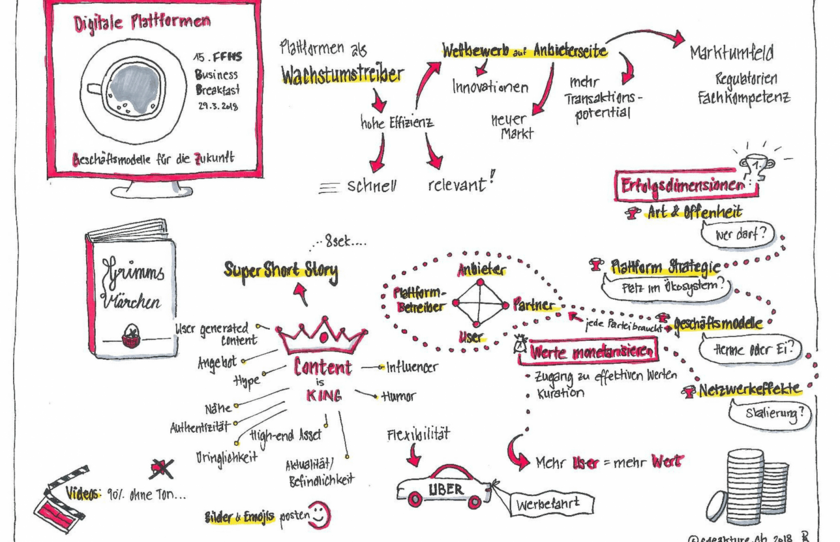 Digitale Plattformen
15. FFHS
Business
Breakfast
29.3.2018
Geschäftsmodelle für die Zukunft
Plattformen als
Wachstumstreiber
hohe Effizienz
schnell
relevant!
Wettbewerb auf Anbieterseite
Innovationen
neuer
Markt
mehr
Transaktions-
potential
Marktumfeld
Regulatorien
Fachkompetenz
Erfolgsdimensionen
1.
Art & Offenheit
Wer darf?
Plattform Strategie
Platz im Ökosystem?
jede Partei braucht
geschäftsmodelle
Henne oder Ei?
Netzwerkeffekte
Skalierung?
Grimms
Märchen
...8sek....
Super Short Story
Content
is
KING
User generated
Content
Angebot
Hype
Nähe
Authentizität
Dringlichkeit
High-end Asset
Aktualität/
Befindlichkeit
Influencer
Humor
Anbieter
Plattform-
Betreiber
Partner
User
Werte monetarisieren
- Zugang zu effektiven Werten
Kuration
Flexibilität
UBER
Werbefahrt
Mehr User = mehr Wert
Videos: 90% ohne Ton...
Bilder & Emojis posten
2018